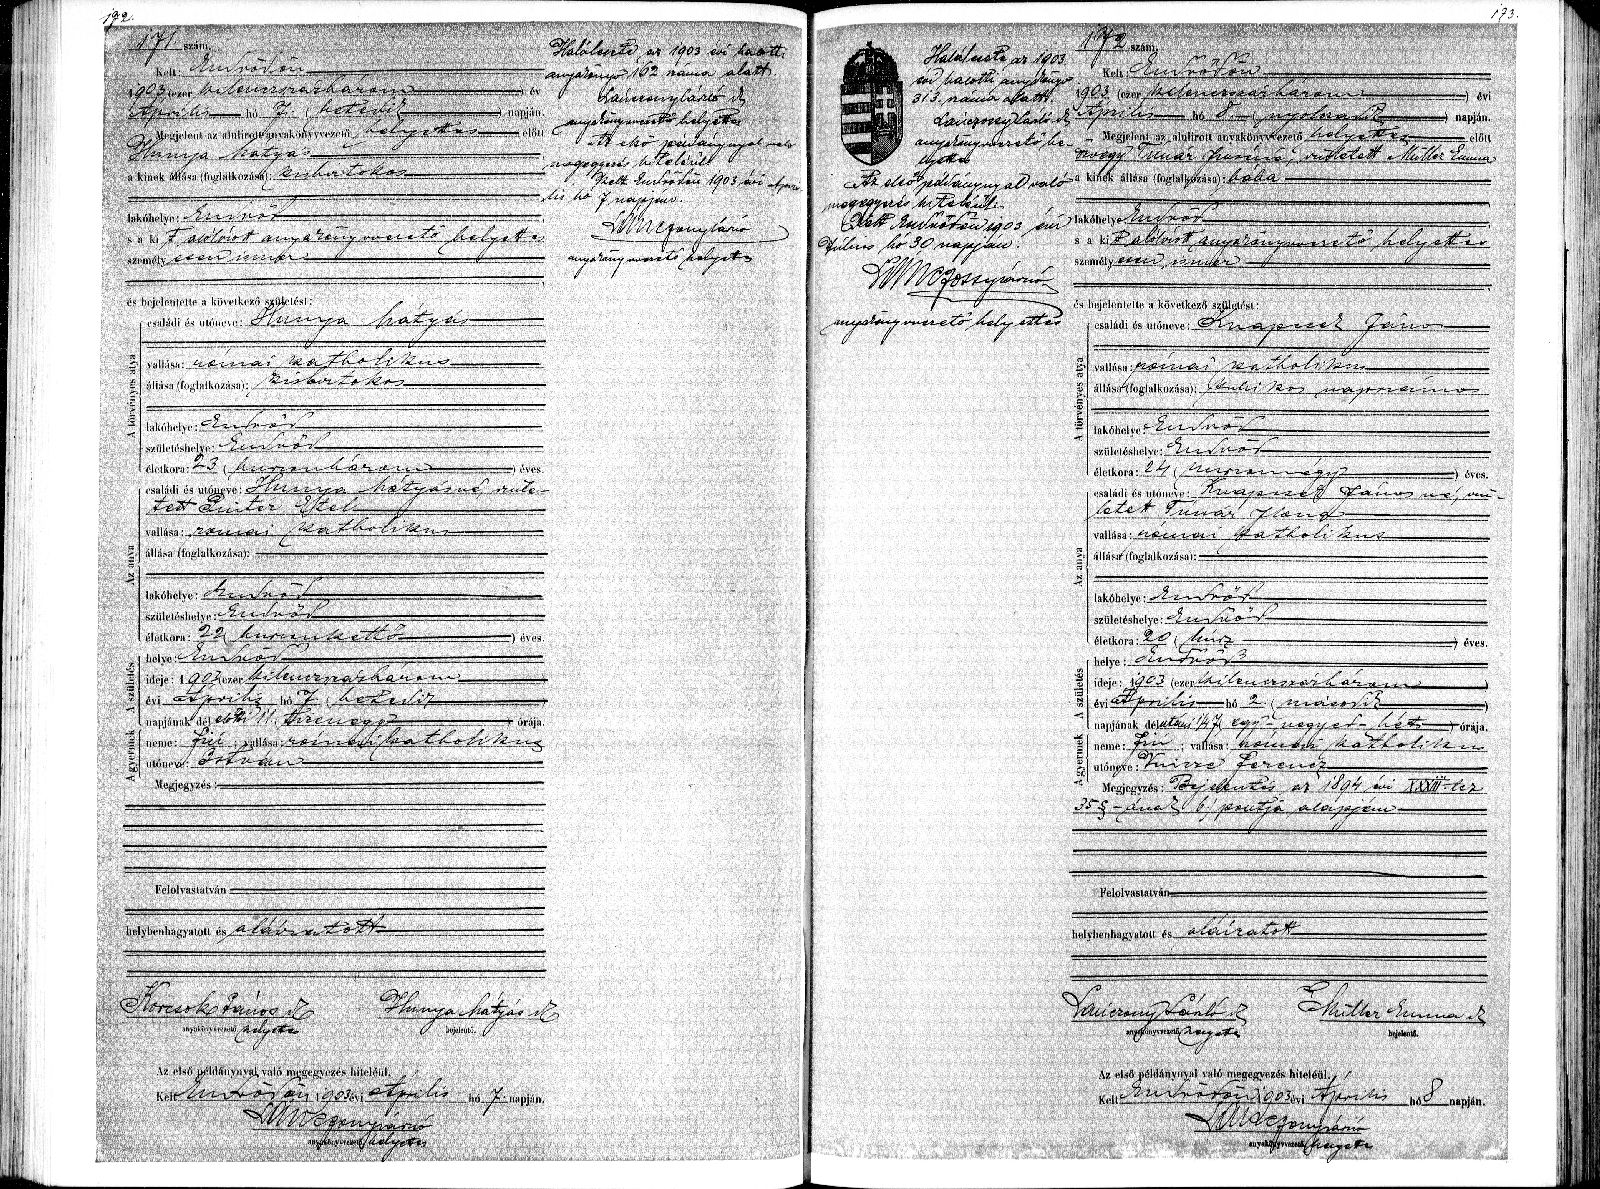 192.
171 szám.
Kelt: Endrődön
1903 ezer kilencszázhárom évi
Április hó 7 (hetedik) napján.
Megjelent az alulirott anyakönyvvezető helyettes előtt
Hunya Mátyás
a kinek állása (foglalkozása): kisbirtokos
lakóhelye: Endrőd
s a ki t alólirott anyakönyvvezető helyettes
személyesen ismer
és bejelentette a következő születést:
A törvényes atya
családi és utóneve: Hunya Mátyás
vallása: római katholikus
állása (foglalkozása): kisbirtokos
lakóhelye: Endrőd
születéshelye: Endrőd
életkora: 23 (huszonhárom) éves.
Az anya
családi és utóneve: Hunya Mátyásné, szüle-
tett Pinter Etel
vallása: római katholikus
állása (foglalkozása):
lakóhelye: Endrőd
születéshelye: Endrőd
életkora: 22 (huszonkettő) éves.
A születés
helye: Endrőd
ideje: 1903 ezer kilencszázhárom
évi Április hó 7 (hetedik)
napjának dél előtti 11. tizenegy órája.
A gyermek
neme: fiú; vallása: római katholikus
utóneve: István
Megjegyzés:
Felolvastatván
helybenhagyatott és aláíratott
Korcsok János sk Hunya Mátyás sk
anyakönyvvezető helyettes bejelentő.
Az első példánynyal való megegyezés hiteléül.
Kelt Endrődön 1903 évi Április hó 7. napján.
anyakönyvvezető helyettes
Haláleset az 1903 évi halotti
anyakönyv 162 száma alatt
anyakönyvvezető helyettes
Az első példánynyal való
megegyezés hiteléül
Kelt Endrődön 1903 évi Ápri-
lis hó 7 napján.
anyakönyvvezető helyettes
193.
Haláleset az 1903
évi halotti anyakönyv
313. száma alatt.
anyakönyvvezető he-
lyettes
Az első példánynyal való
megegyezés hiteléül.
Kelt Endrődön 1903 évi
Július hó 30 napján.
anyakönyvvezető helyettes
172 szám.
Kelt: Endrődön
1903 (ezer kilencszázhárom) évi
Április hó 8. (nyolcadik) napján.
Megjelent az alulirott anyakönyvvezető helyettes előtt
özvegy Tímár született Müller Emma
a kinek állása (foglalkozása): bába
lakóhelye Endrőd
s a ki t alólirott anyakönyvvezető helyettes
személyesen ismer
és bejelentette a következő születést:
A törvényes atya
családi és utóneve: Knapcsek János
vallása: római katholikus
állása (foglalkozása): napszámos
lakóhelye: Endrőd
születéshelye: Endrőd
életkora: 24 (huszonnégy) éves.
Az anya
családi és utóneve: Knapcsek Jánosné, szü-
letett Tímár Ilona
vallása: római katholikus
állása (foglalkozása):
lakóhelye: Endrőd
születéshelye: Endrőd
életkora: 20 (húsz) éves.
A születés
helye: Endrőd
ideje: 1903 (ezer kilencszázhárom)
évi Április hó 2 (második)
napjának délutáni ¼7 (egy negyed hét) órája.
A gyermek
neme: fiú; vallása: római katholikus
utóneve: Vincze Ferencz
Megjegyzés: Bejelentés az 1894 évi XXXIII-tcz
35 §-ának b) pontja alapján
Felolvastatván
helybenhagyatott és aláíratott
Müller Emma sk
anyakönyvvezető helyettes bejelentő.
Az első példánynyal való megegyezés hiteléül.
Kelt Endrődön 1903 évi Április hó 8 napján.
anyakönyvvezető helyettes